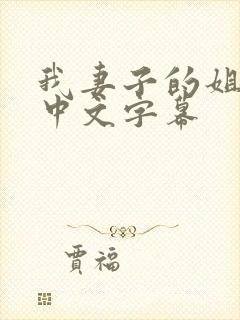 我妻子的姐
中文字幕
贾福